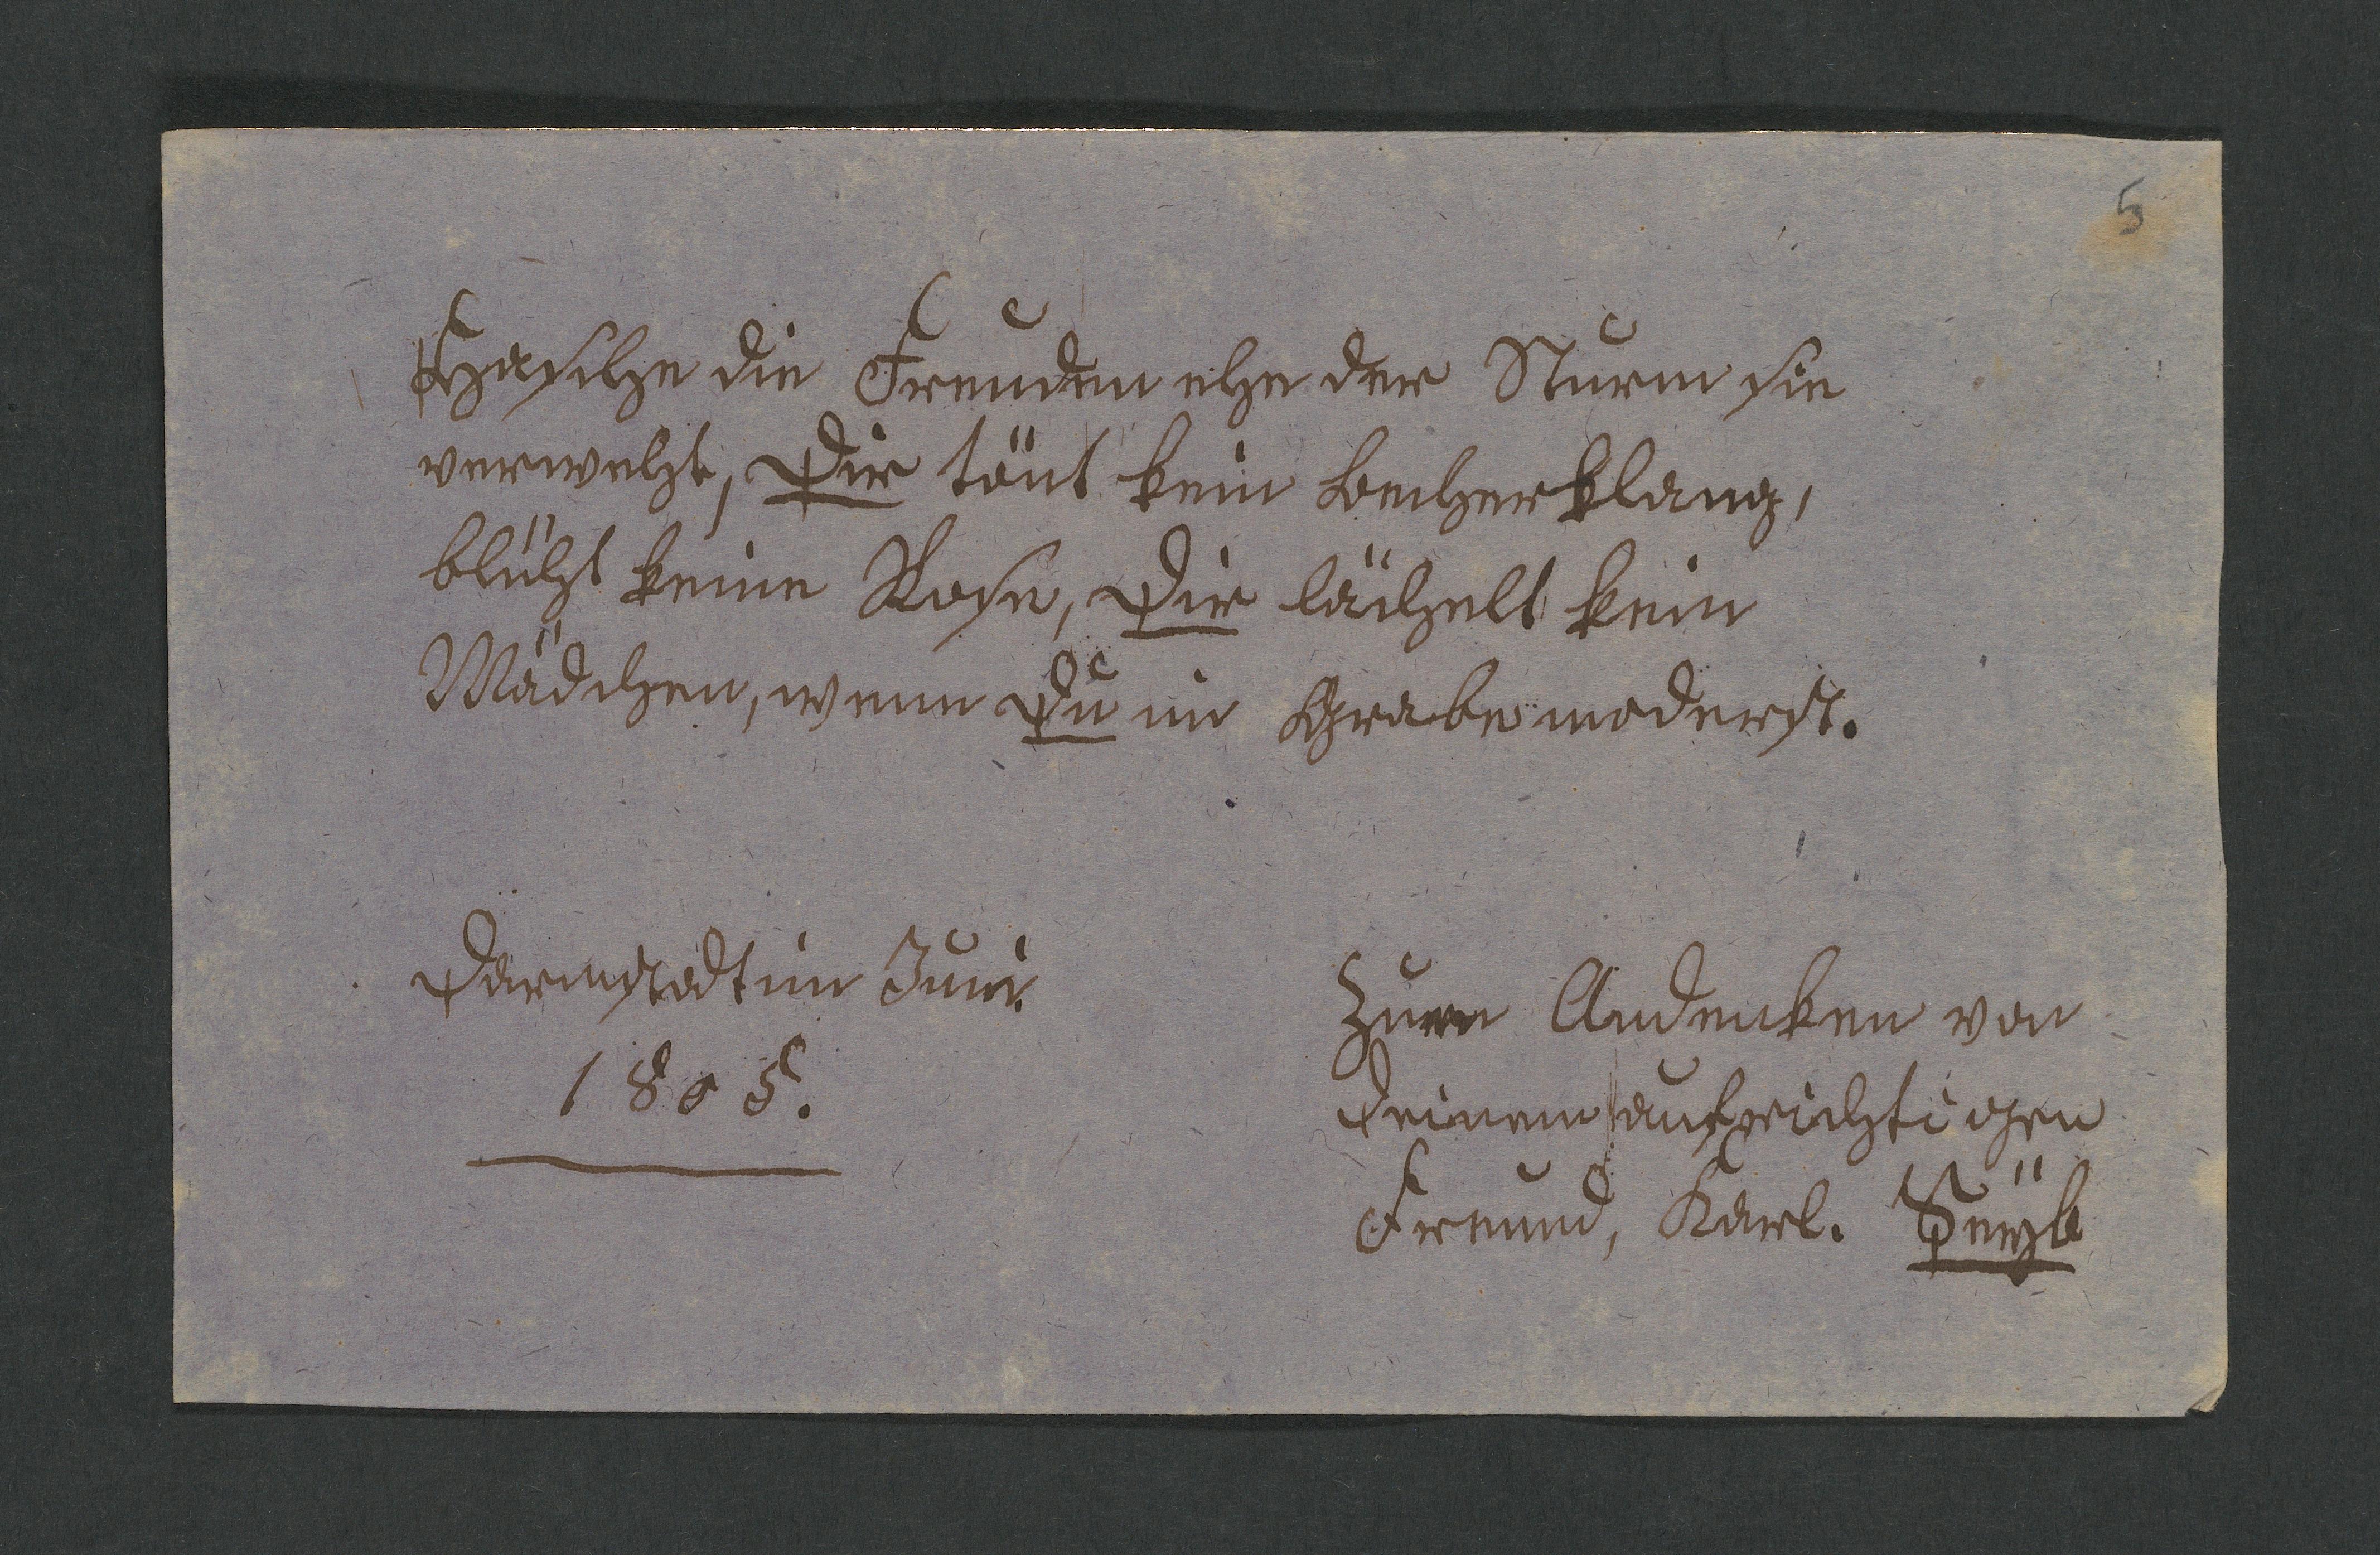 5
Hasche die Freuden ehe der Sturm sie
verweht, Dir tönt kein Becherklang,
blüht keine Rose, Dir lächelt kein
Mädchen, wenn Du im Grabe moderst.
Darmstadt im Juni
1805.
Zum Andenken von
Deinem aufrichtigen
Freund, Karl.